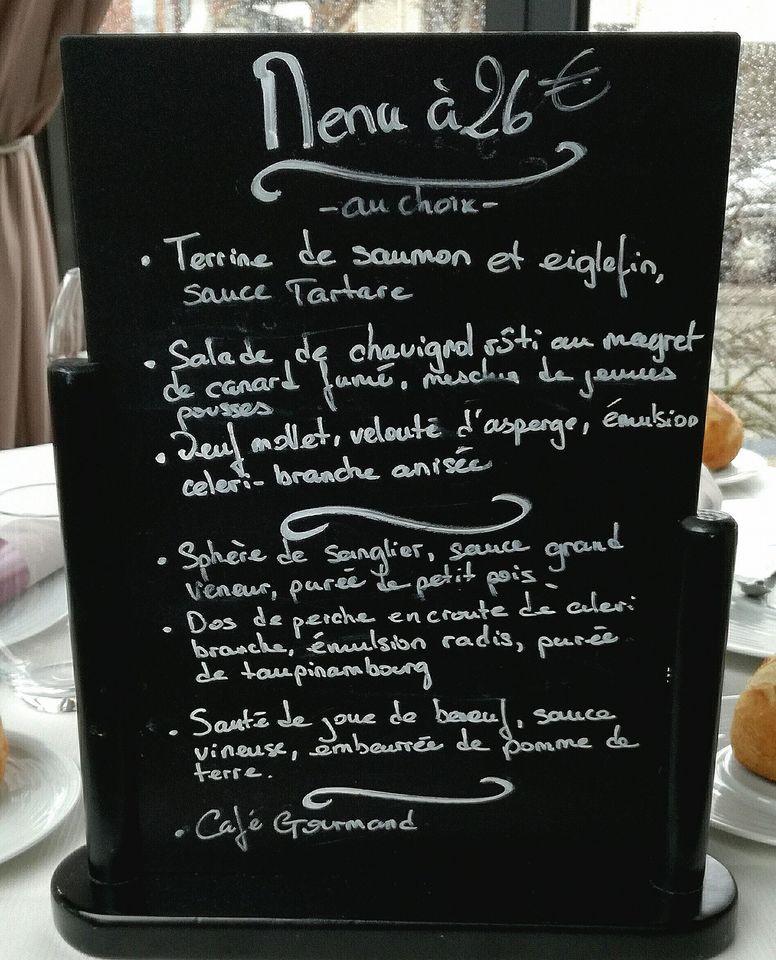 Menu à 26 €
-au choix-
• Terrine de saumon et eiglefin,
sauce Tartare
• Salade de chavignol rôti au magret
de canard fumé, mesclun de jeunes
pousses
• Oeuf mollet, velouté d'asperge, émulsion
celeri-branche anisée
• Sphère de sanglier, sauce grand
veneur, purée de petit pois
• Dos de perche en croute de celeri
branche, émulsion radis, purée
de taupinambourg
• Sauté de joue de boeuf, sauce
vineuse, embeurrée de pomme de
terre.
• Café Gourmand